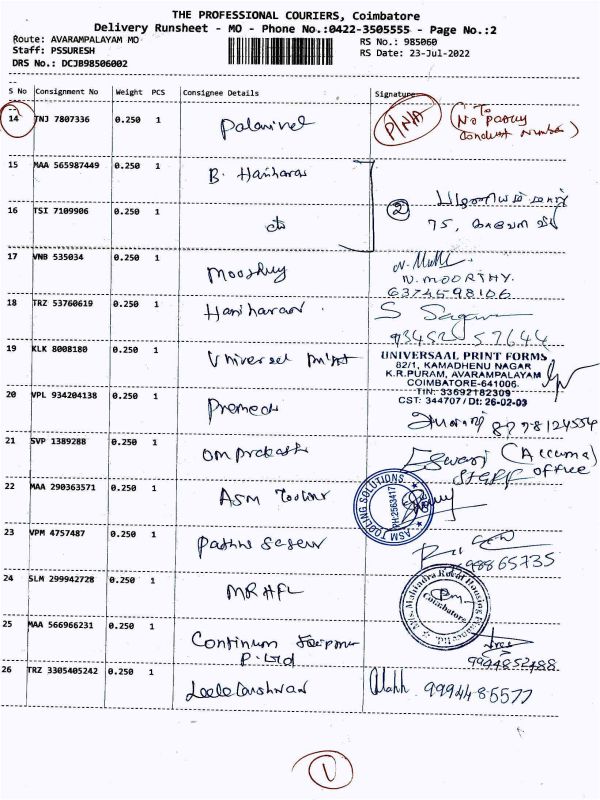 THE PROFESSIONAL COURIERS, Coimbatore
Delivery Runsheet - MO - Phone No.:0422-3505555 - Page No.:2
Route: AVARAMPALAYAM MO RS No.: 985060
Staff: PSSURESH RS Date: 23-Jul-2022
DRS No.: DCJB98506002
S No Consignment No Weight PCS Consignee Details Signature
14 TNJ 7807336 0.250 1 Palanivel P/N/A (To No Party Conduct Number)
15 MAA 565987449 0.250 1 B. Hariharan
16 TSI 7109906 0.250 1 do 2 75,
17 VNB 535034 0.250 1 Moorthy N. Muthu
N. MOORTHY.
6374598106
18 TRZ 53760619 0.250 1 Hariharan S Sagar
93452 57644
19 KLK 8008180 0.250 1 Universel print
UNIVERSAAL PRINT FORMS
82/1, KAMADHENU NAGAR
K.R.PURAM, AVARAMPALAYAM
COIMBATORE-641006.
TIN: 33592182309
CST: 344707 / Dt: 26-02-03
20 VPL 934204138 0.250 1 Premeds 8778124554
21 SVP 1389288 0.250 1 Om prakash Eswari (Accuma)
Staff office
22 MAA 290363571 0.250 1 ASM Tooling
ASM TOOLING SOLUTIONS. PH:2563417
23 VPM 4757487 0.250 1
24 SLM 299942728 0.250 1 MRHFL
M/s. Mahindra Rural Housing Finance Ltd. Coimbatore
25 MAA 566966231 0.250 1 Continum
P. Ltd 9994852488
26 TRZ 3305405242 0.250 1 Leeladarshwan 9994485577
1